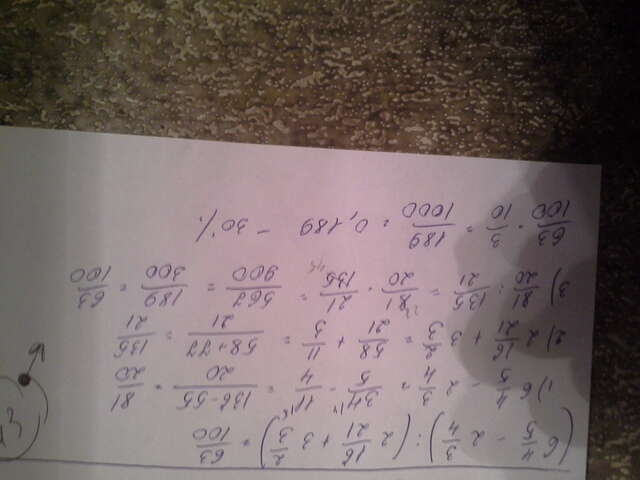 (6 4/5 - 2 3/4) : (2 16/21 + 3 2/3) = 63/100
1) 6 4/5 - 2 3/4 = 34/5 - 11/4 = 136-55/20 = 81/20
2) 2 16/21 + 3 2/3 = 58/21 + 11/3 = 58+77/21 = 135/21
3) 81/20 : 135/21 = 81/20 · 21/135 = 567/900 = 189/300 = 63/100
63/100 · 3/10 = 189/1000 = 0,189 - 30%